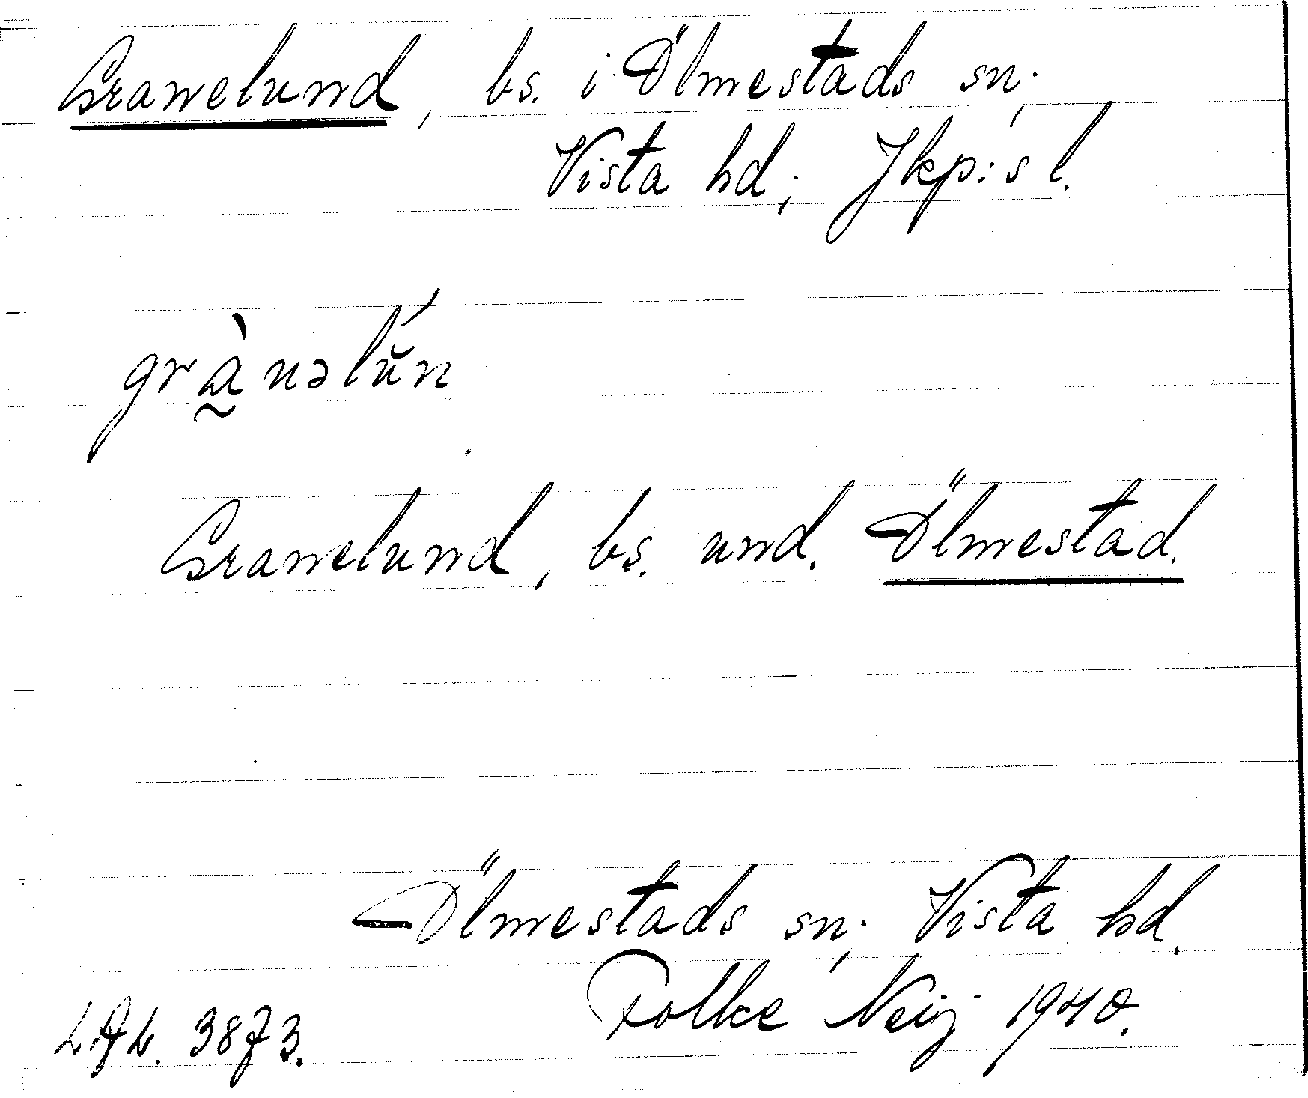 Granelund, bs. i Ölmestads sn;
Vista hd; Jkp:s l.
grànəlŭ́n
Granelund, bs. und. Ölmestad.
Ölmestads sn; Vista hd.
Folke Neij 1940.
LAL. 3873.